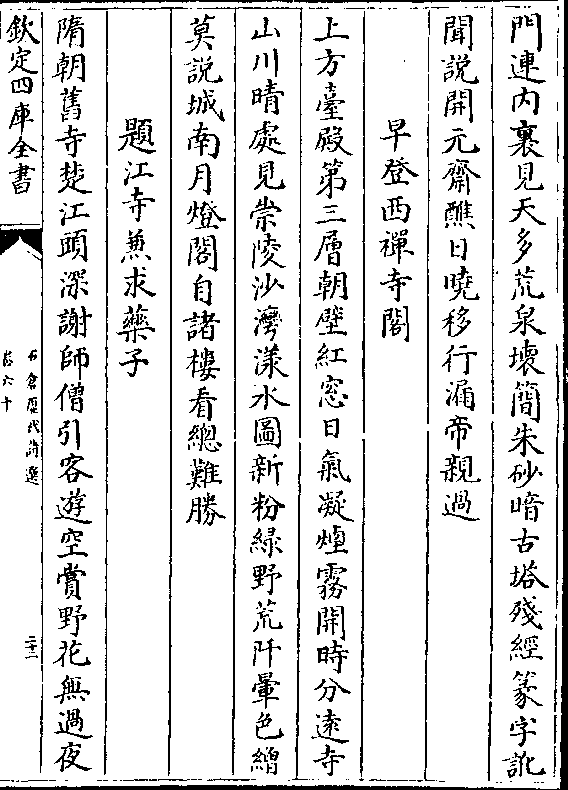 門連内裏見天多荒泉壞簡朱砂暗古塔殘經篆字訛
聞說開元齋醮日曉移行漏帝親過
早登西禪寺閣
上方臺殿第三層朝壁紅窓日氣凝煙霧開時分逺寺
山川晴處見崇陵沙灣漾水圖新粉緑野荒阡暈色繒
莫說城南月燈閣自諸樓看總難勝
題江寺兼求藥子
隋朝舊寺楚江頭深謝師僧引客遊空賞野花無過夜
欽定四庫全書
石倉歴代詩選
卷六十
二十二